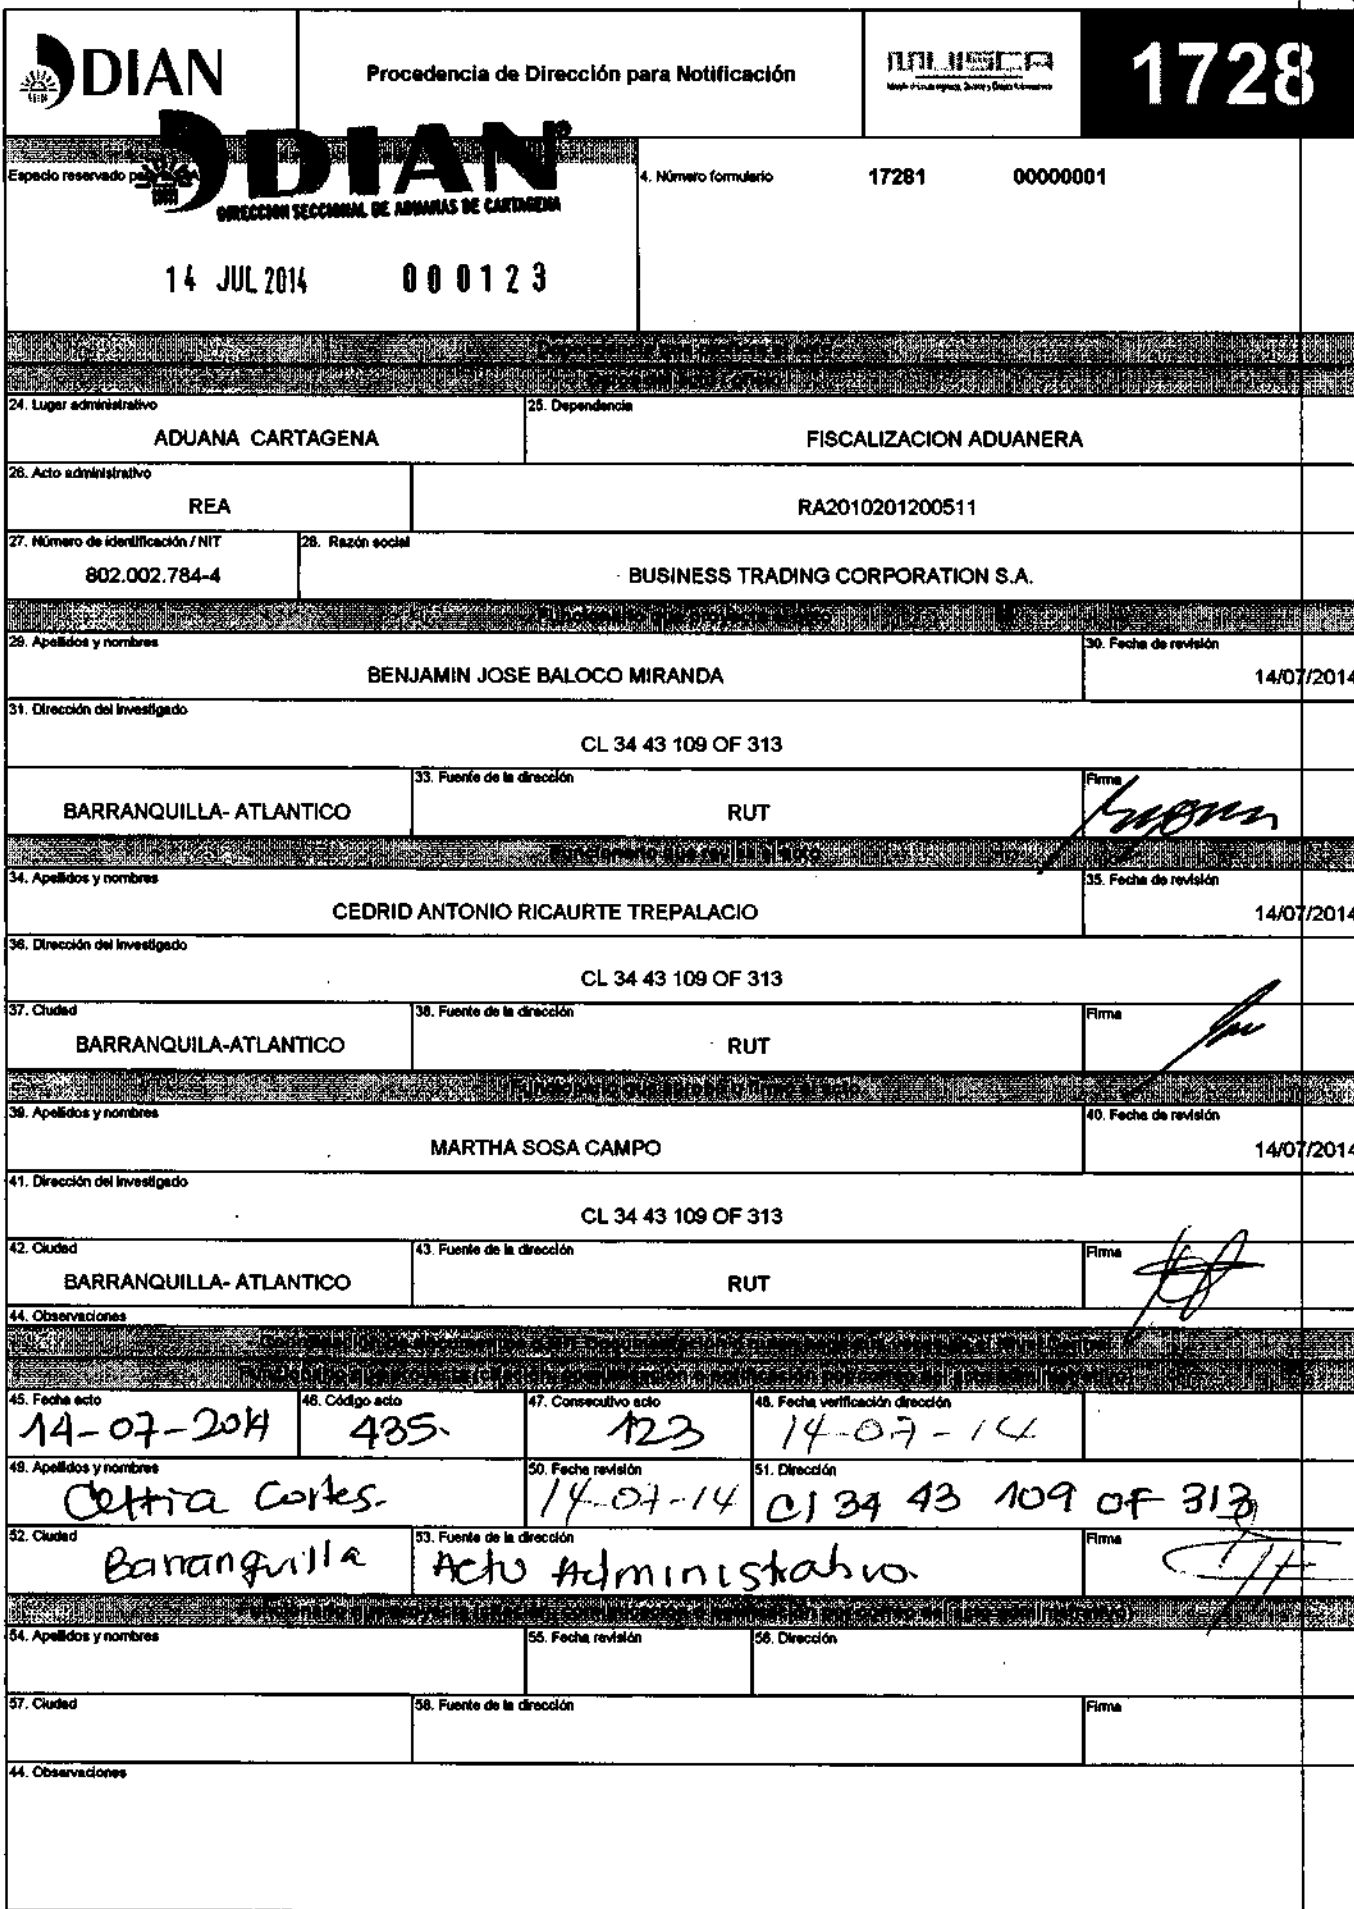 DIAN
Procedencia de Dirección para Notificación
MUISCA
1728
Espacio reservado
DIAN
DIRECCION SECCIONAL DE ADUANAS DE CARTAGENA
14 JUL 2014 000123
4. Número formulario 17281 00000001
24. Lugar administrativo
ADUANA CARTAGENA
25. Dependencia
FISCALIZACION ADUANERA
26. Acto administrativo
REA
RA2010201200511
27. Número de identificación / NIT
802.002.784-4
28. Razón social
BUSINESS TRADING CORPORATION S.A.
29. Apellidos y nombres
BENJAMIN JOSE BALOCO MIRANDA
30. Fecha de revisión
14/07/2014
31. Dirección del investigado
CL 34 43 109 OF 313
BARRANQUILLA- ATLANTICO
33. Fuente de la dirección
RUT
Firma
Funcionario que revisa el acto
34. Apellidos y nombres
CEDRID ANTONIO RICAURTE TREPALACIO
35. Fecha de revisión
14/07/2014
36. Dirección del investigado
CL 34 43 109 OF 313
37. Ciudad
BARRANQUILA-ATLANTICO
38. Fuente de la dirección
RUT
Firma
39. Apellidos y nombres
MARTHA SOSA CAMPO
40. Fecha de revisión
14/07/2014
41. Dirección del investigado
CL 34 43 109 OF 313
42. Ciudad
BARRANQUILLA- ATLANTICO
43. Fuente de la dirección
RUT
Firma
44. Observaciones
45. Fecha acto
14-07-2014
46. Código acto
435.
47. Consecutivo acto
123
48. Fecha verificación dirección
14-07-14
49. Apellidos y nombres
Cortes.
50. Fecha revisión
14-07-14
51. Dirección
Cl 34 43 109 OF 313
52. Ciudad
Barranquilla
53. Fuente de la dirección
Acto Administrativo.
Firma
54. Apellidos y nombres
55. Fecha revisión
56. Dirección
57. Ciudad
58. Fuente de la dirección
Firma
44. Observaciones